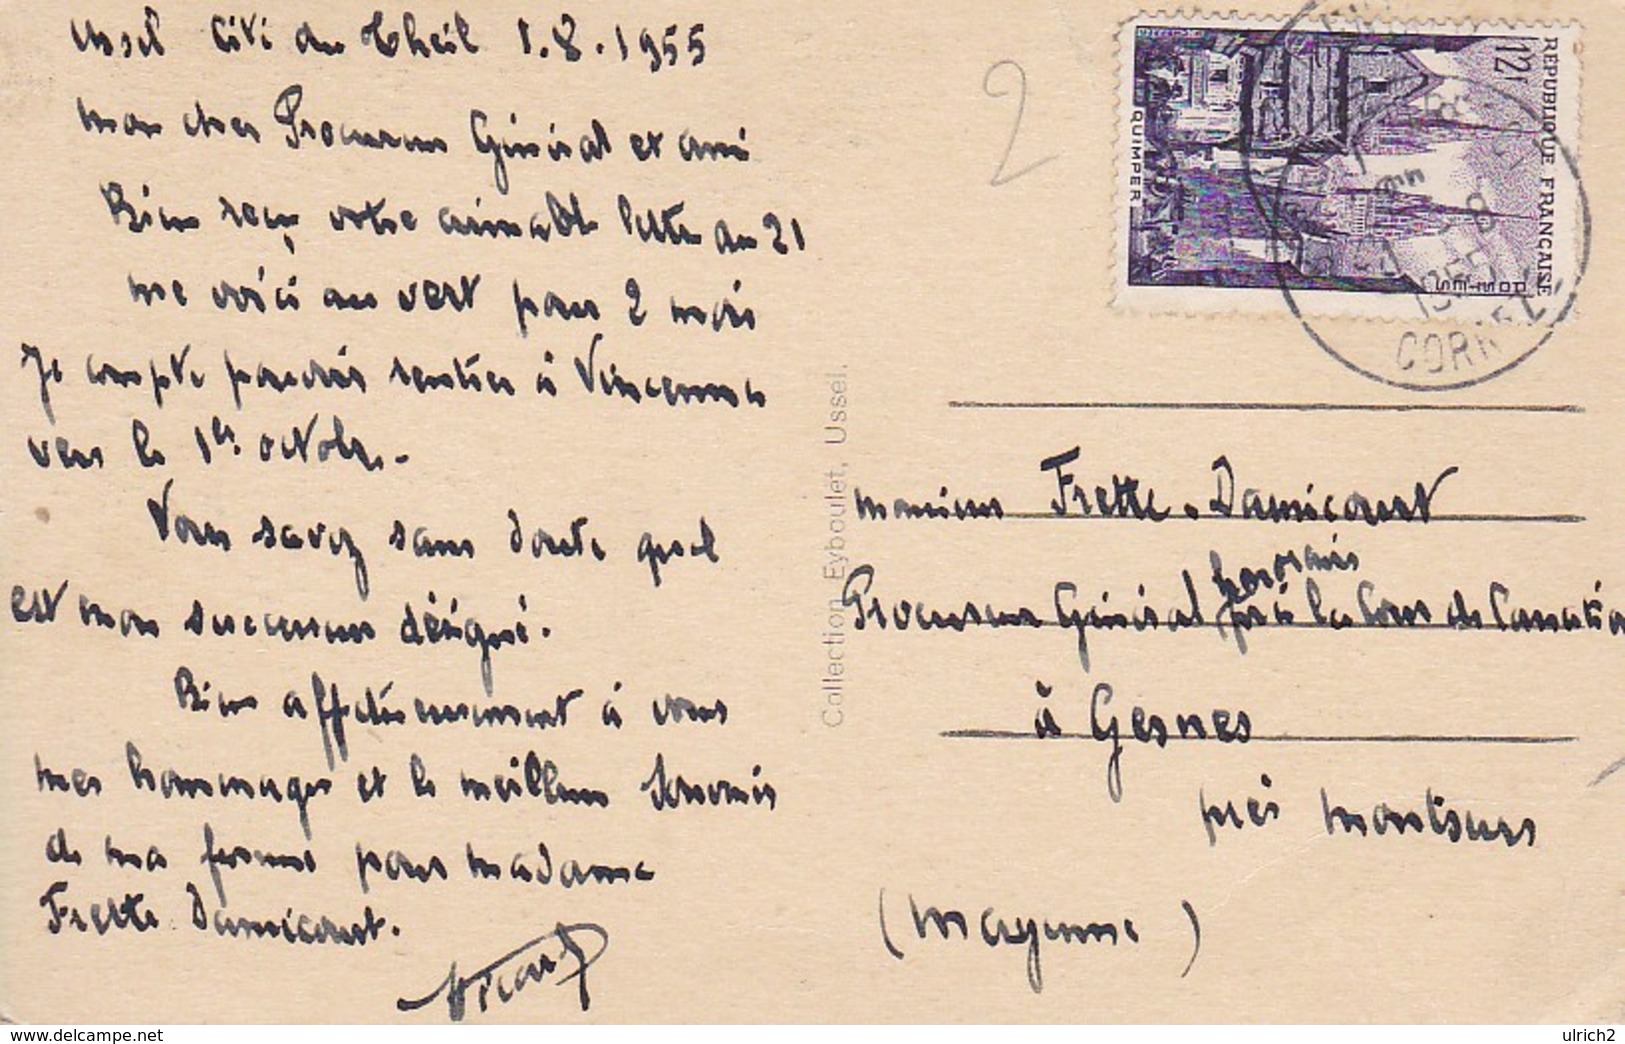 Ussel Cité du Theil 1.8.1955
mon cher Procureur Général et ami
Bien reçu votre aimable lettre du 21
me voici au vert pour 2 mois
Je compte pouvoir rentrer à Vincennes
vers le 1er octobre.
Vous savez sans doute quel
est mon successeur désigné.
Bien affectueusement à vous
mes hommages et le meilleur souvenir
de ma femme pour madame
Frette Damicourt.
2
REPUBLIQUE FRANÇAISE
12f
POSTES
QUIMPER
1955
CORREZE
Collection Eyboulet, Ussel.
monsieur Frette-Damicourt
honoraire
Procureur Général près la Cour de Cassation
à Gesnes
près montsurs
(mayenne)
delcampe.net
ulrich2